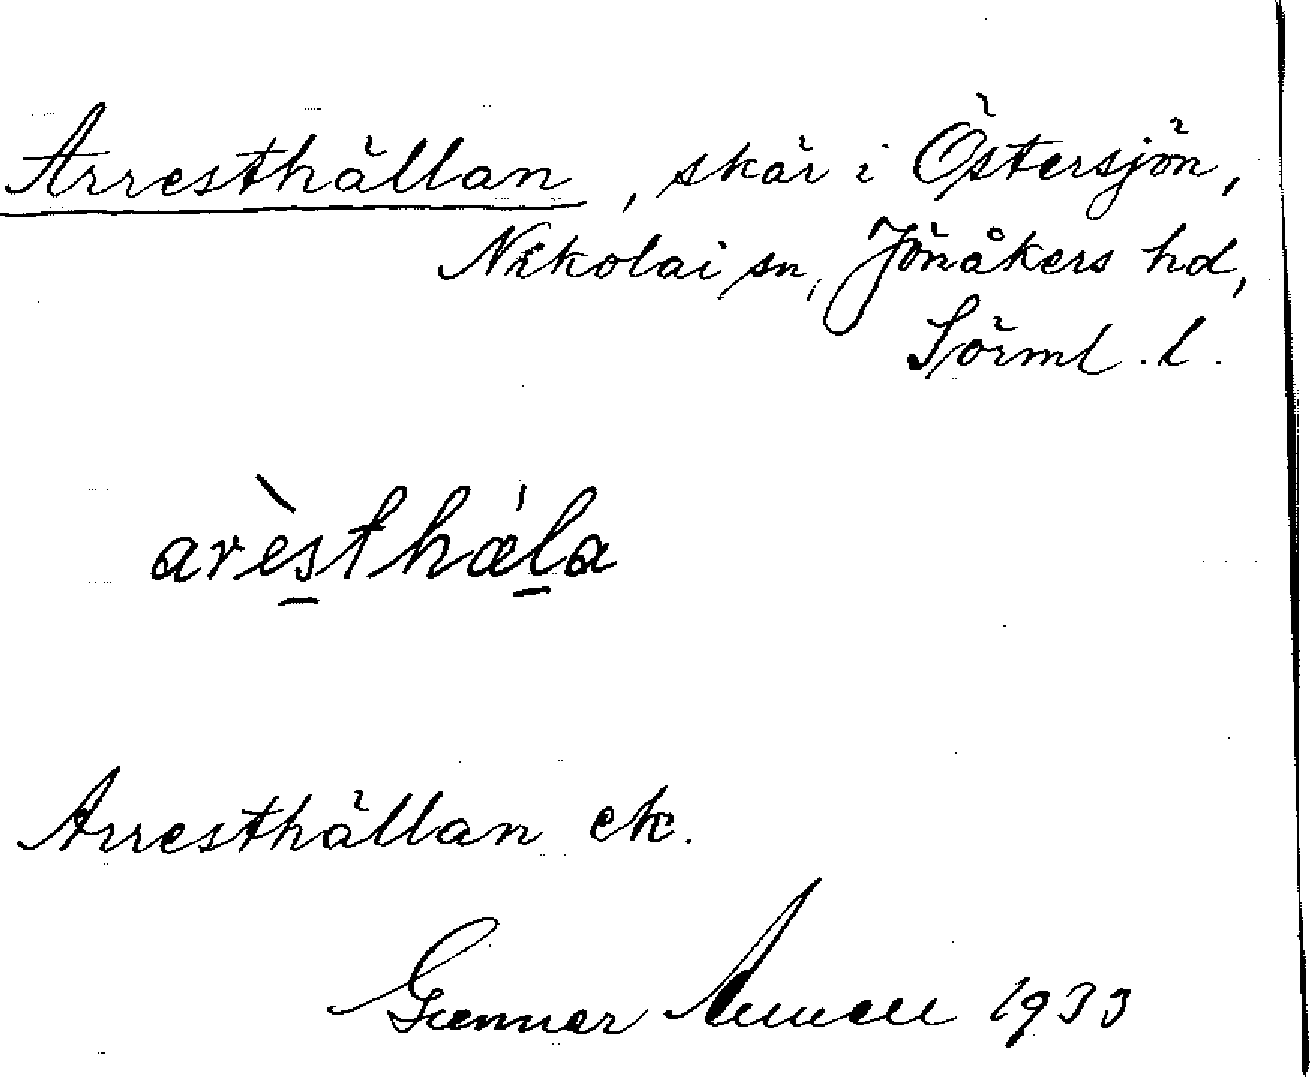 Arresthällan, skär i Östersjön,
Nikolai sn, Jönåkers hd,
Sörml. l.
arèsthæ̀la
Arresthällan ek.
Gunnar 1933